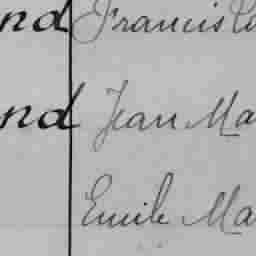 nd Francis
nd Jean Ma
Emile Ma